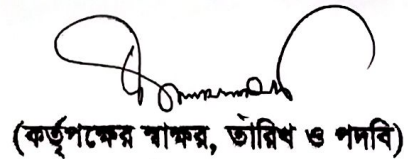 (কর্তৃপক্ষের স্বাক্ষর, তারিখ ও পদবি)